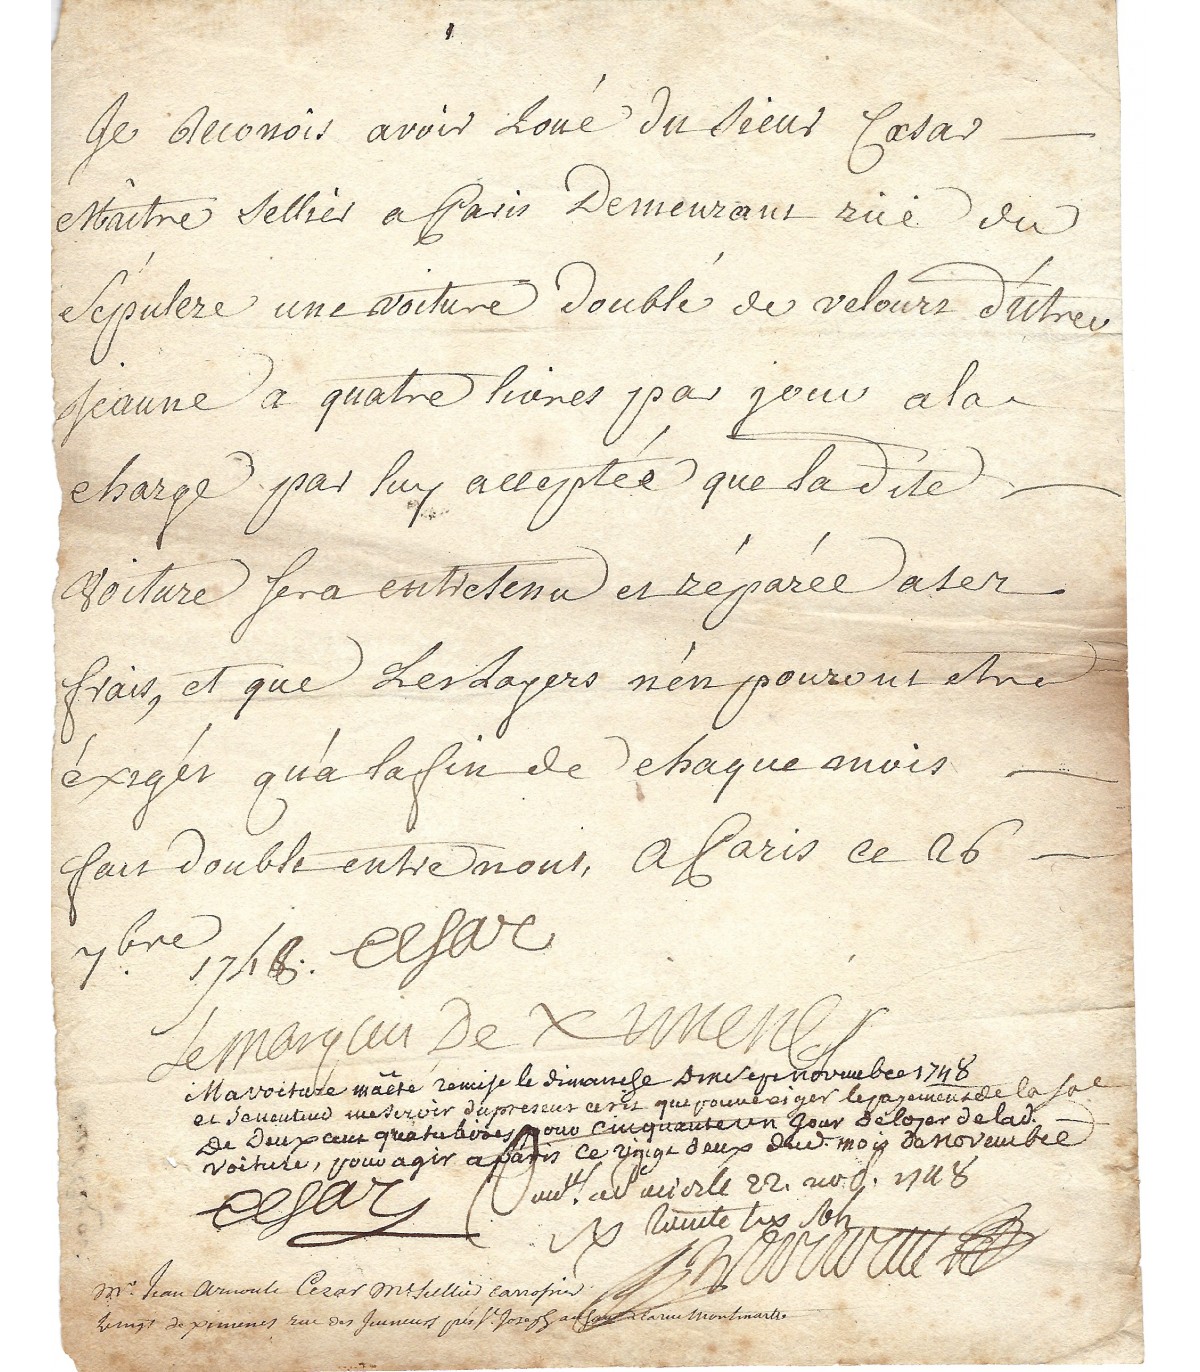 Je reconois avoir Loué du sieur Cæsar
Maître sellier a Paris Demeurant rüe du
Sépulcre une voiture doublé de velours d'Utrec
jeaune a quatre livres par jour a la
charge par luy acceptée que la dite
Voiture sera entretenu et réparée a ses
frais, et que Les Loyers n'en pouront etre
éxigés qu'a la fin de chaque mois
fait double entre nous, a Paris ce 26
7.bre 1748. Cesar
Le marquis De Ximenes
Ma voiture m'a été remise le dimanche novembre 1748
et j'entend me servir du present ecrit que pour exiger le payement de la so.e
De Deux cent quatre livres pour cinquante un jour de loyer de lad.
voiture, pour agir a Paris ce vingt deux dud. mois de novembre
Cesar
a Paris le 22. nov. 1748
R
M.r Jean Arnoult Cezar M.e sellier carrossier
de Ximenes rue des Jeuneurs près S.t Joseph la rue Montmartre